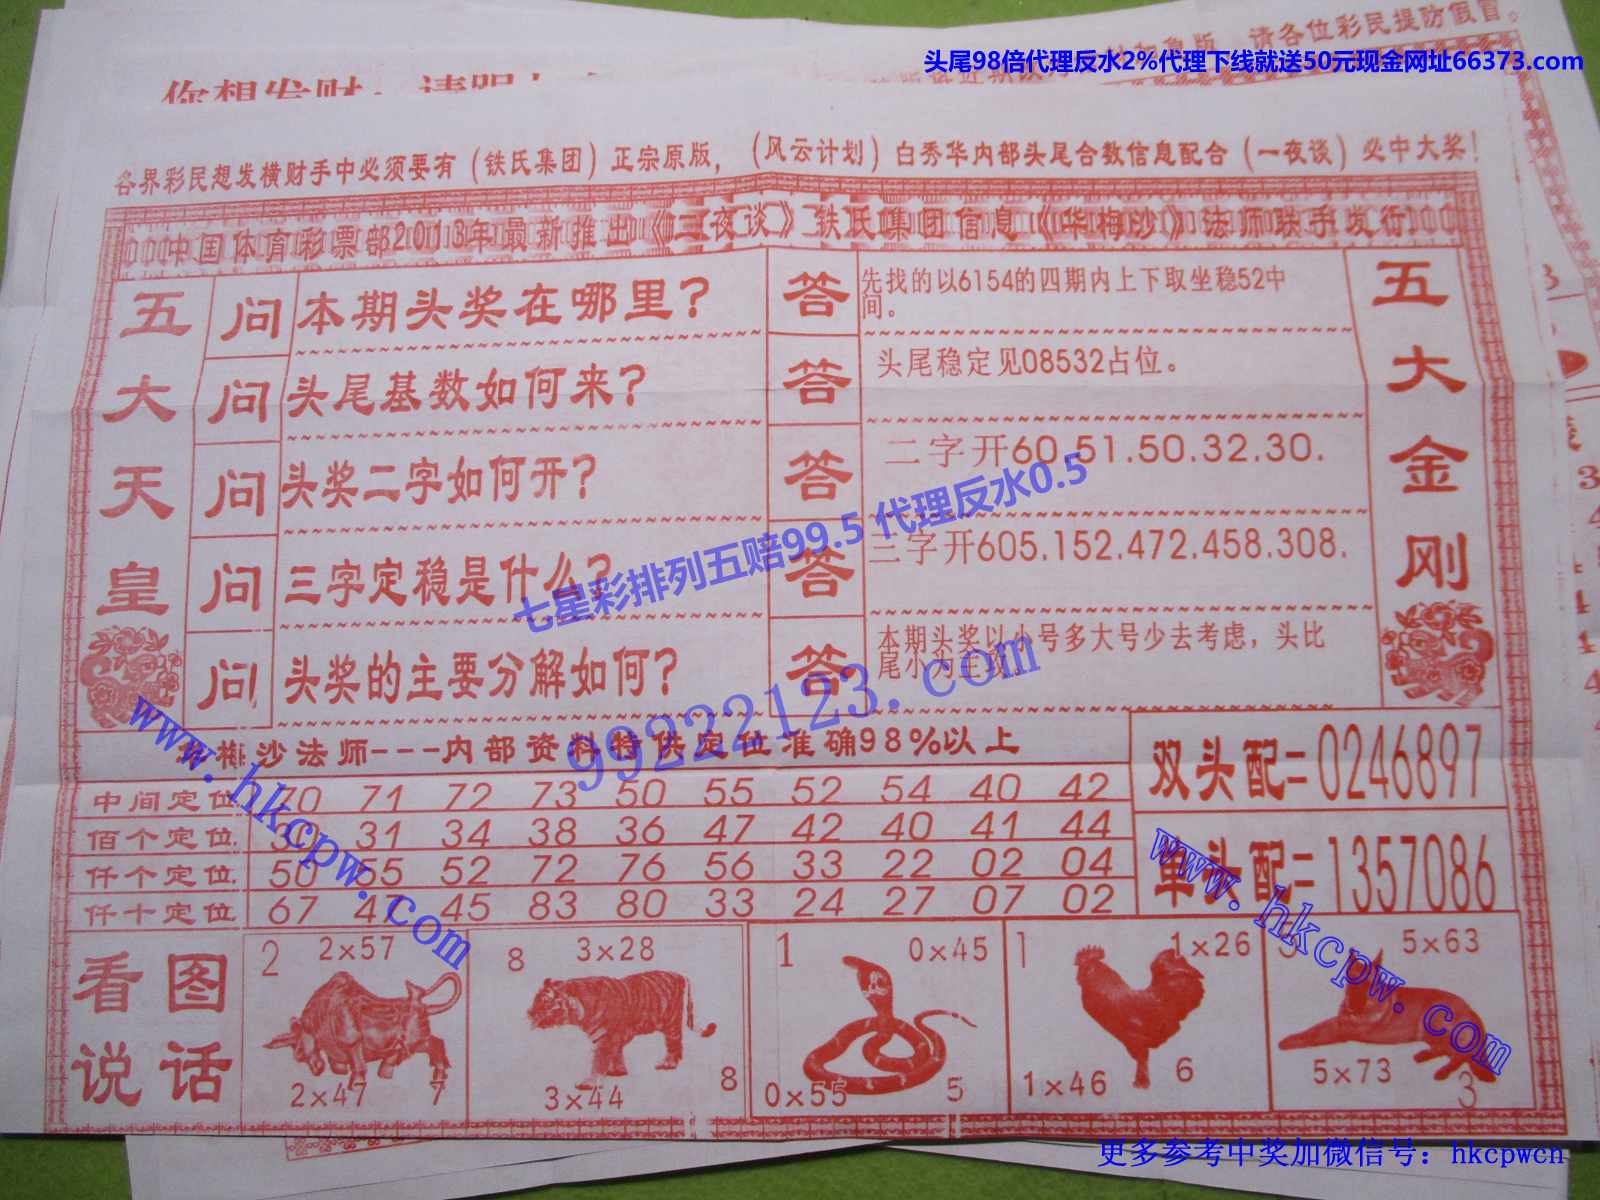 头尾98倍代理反水2%代理下线就送50元现金网址66373.com
请各位彩民提防假冒。
你想发财
各界彩民想发横财手中必须要有(铁氏集团)正宗原版,(风云计划)白秀华内部头尾合数信息配合(一夜谈)必中大奖!
中国体育彩票部2013年最新推出《一夜谈》铁氏集团信息《华梅沙》法师联手发行
五大天皇
问 本期头奖在哪里? 答 先找的以6154的四期内上下取坐稳52中
间。
问 头尾基数如何来? 答 头尾稳定见08532占位。
问 头奖二字如何开? 答 二字开60.51.50.32.30.
问 三字定稳是什么? 答 三字开605.152.472.458.308.
问 头奖的主要分解如何? 答 本期头奖以小号多大号少去考虑,头比
尾小为主攻
五大金刚
七星彩排列五赔99.5 代理反水0.5
99222123.com
www.hkcpw.com
华梅沙法师---内部资料特供定位准确98%以上
中间定位 70 71 72 73 50 55 52 54 40 42
佰个定位 30 31 34 38 36 47 42 40 41 44
仟个定位 50 55 52 72 76 56 33 22 02 04
仟十定位 67 47 45 83 80 33 24 27 07 02
双头配=0246897
单头配=1357086
www.hkcpw.com
看图
说话
2 2×57
2×47 7
8 3×28
3×44 8
1 0×45
0×55 5
1 1×26
1×46 6
5×63
5×73 3
更多参考中奖加微信号:hkcpwcn